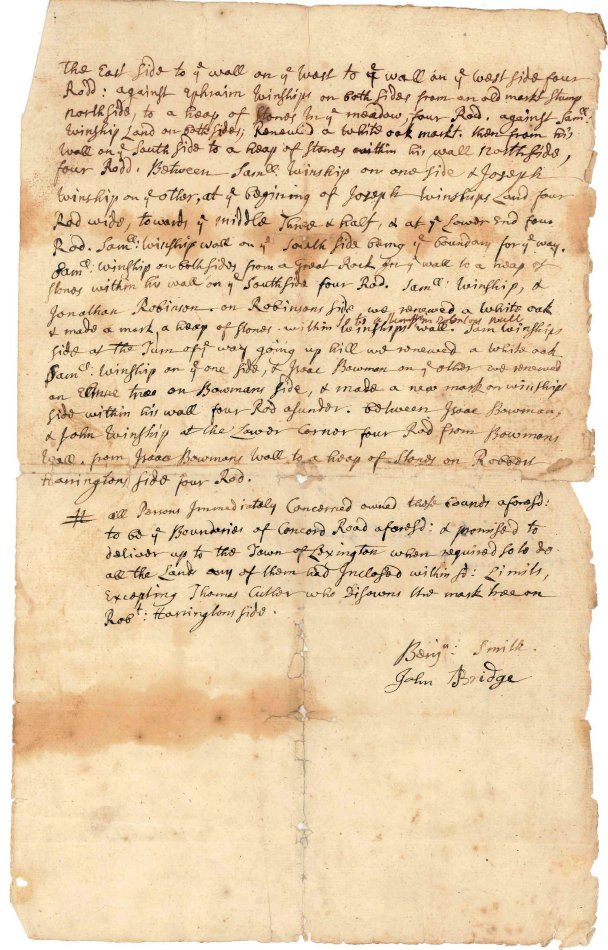 The East Side to yͤ wall on yͤ West to yͤ wall on yͤ west side four
Rodd: against Ephraim Winships on both sides from an old markt Stump
northside, to a heap of Stones In yͤ meadow four Rod. against Samˡˡ
Winship Land on both sides, Renewed a White oak markt. then from his
Wall on yͤ South Side to a heap of Stones within his wall Northside,
four Rodd. Between Samˡˡ Winship on one side & Joseph
Winship on yͤ other, at yͤ begining of Joseph Winships Land four
Rod wide, towards yͤ middle Three & half, & at yͤ Lower End four
Rod. Samˡˡ: Winship wall on yͤ South side being yͤ boundary for yͤ way.
Samˡˡ: Winship on both sides from a Great Rock In yͤ wall to a heap of
stones within his wall on yͤ Southside four Rod. Samˡˡ Winship, &
Jonathan Robinson. on Robinsons side we renewed a White oak
to a Robinsons wall
& made a mark a heap of stones. within Winships wall. Sam Winships
side at the Turn of yͤ way going up hill we renewed a white oak
Samˡˡ: Winship on yͤ one side, & Isaac Bowman on yͤ other we renewed
an Elme tree on Bowmans side, & made a new mark on winships
side within his wall four Rod asunder. between Isaac Bowman,
& John Winship at the Lower Corner four Rod from Bowmans
Wall. from Isaac Bowmans Wall to a heap of Stones on Robert
Harringtons side four Rod.
# all Persons Immediately Concerned owned these bounds aforesᵈ:
to be yͤ Boundaries of Concord Road aforesᵈ: & promised to
deliver up to the Town of Lexington when required so to do
all the Land any of them had Inclosed within sᵈ: Limits,
Excepting Thomas Cutler who disowns the mark tree on
Robᵗ: Harringtons side.
Benjⁿ: Smith.
John Bridge